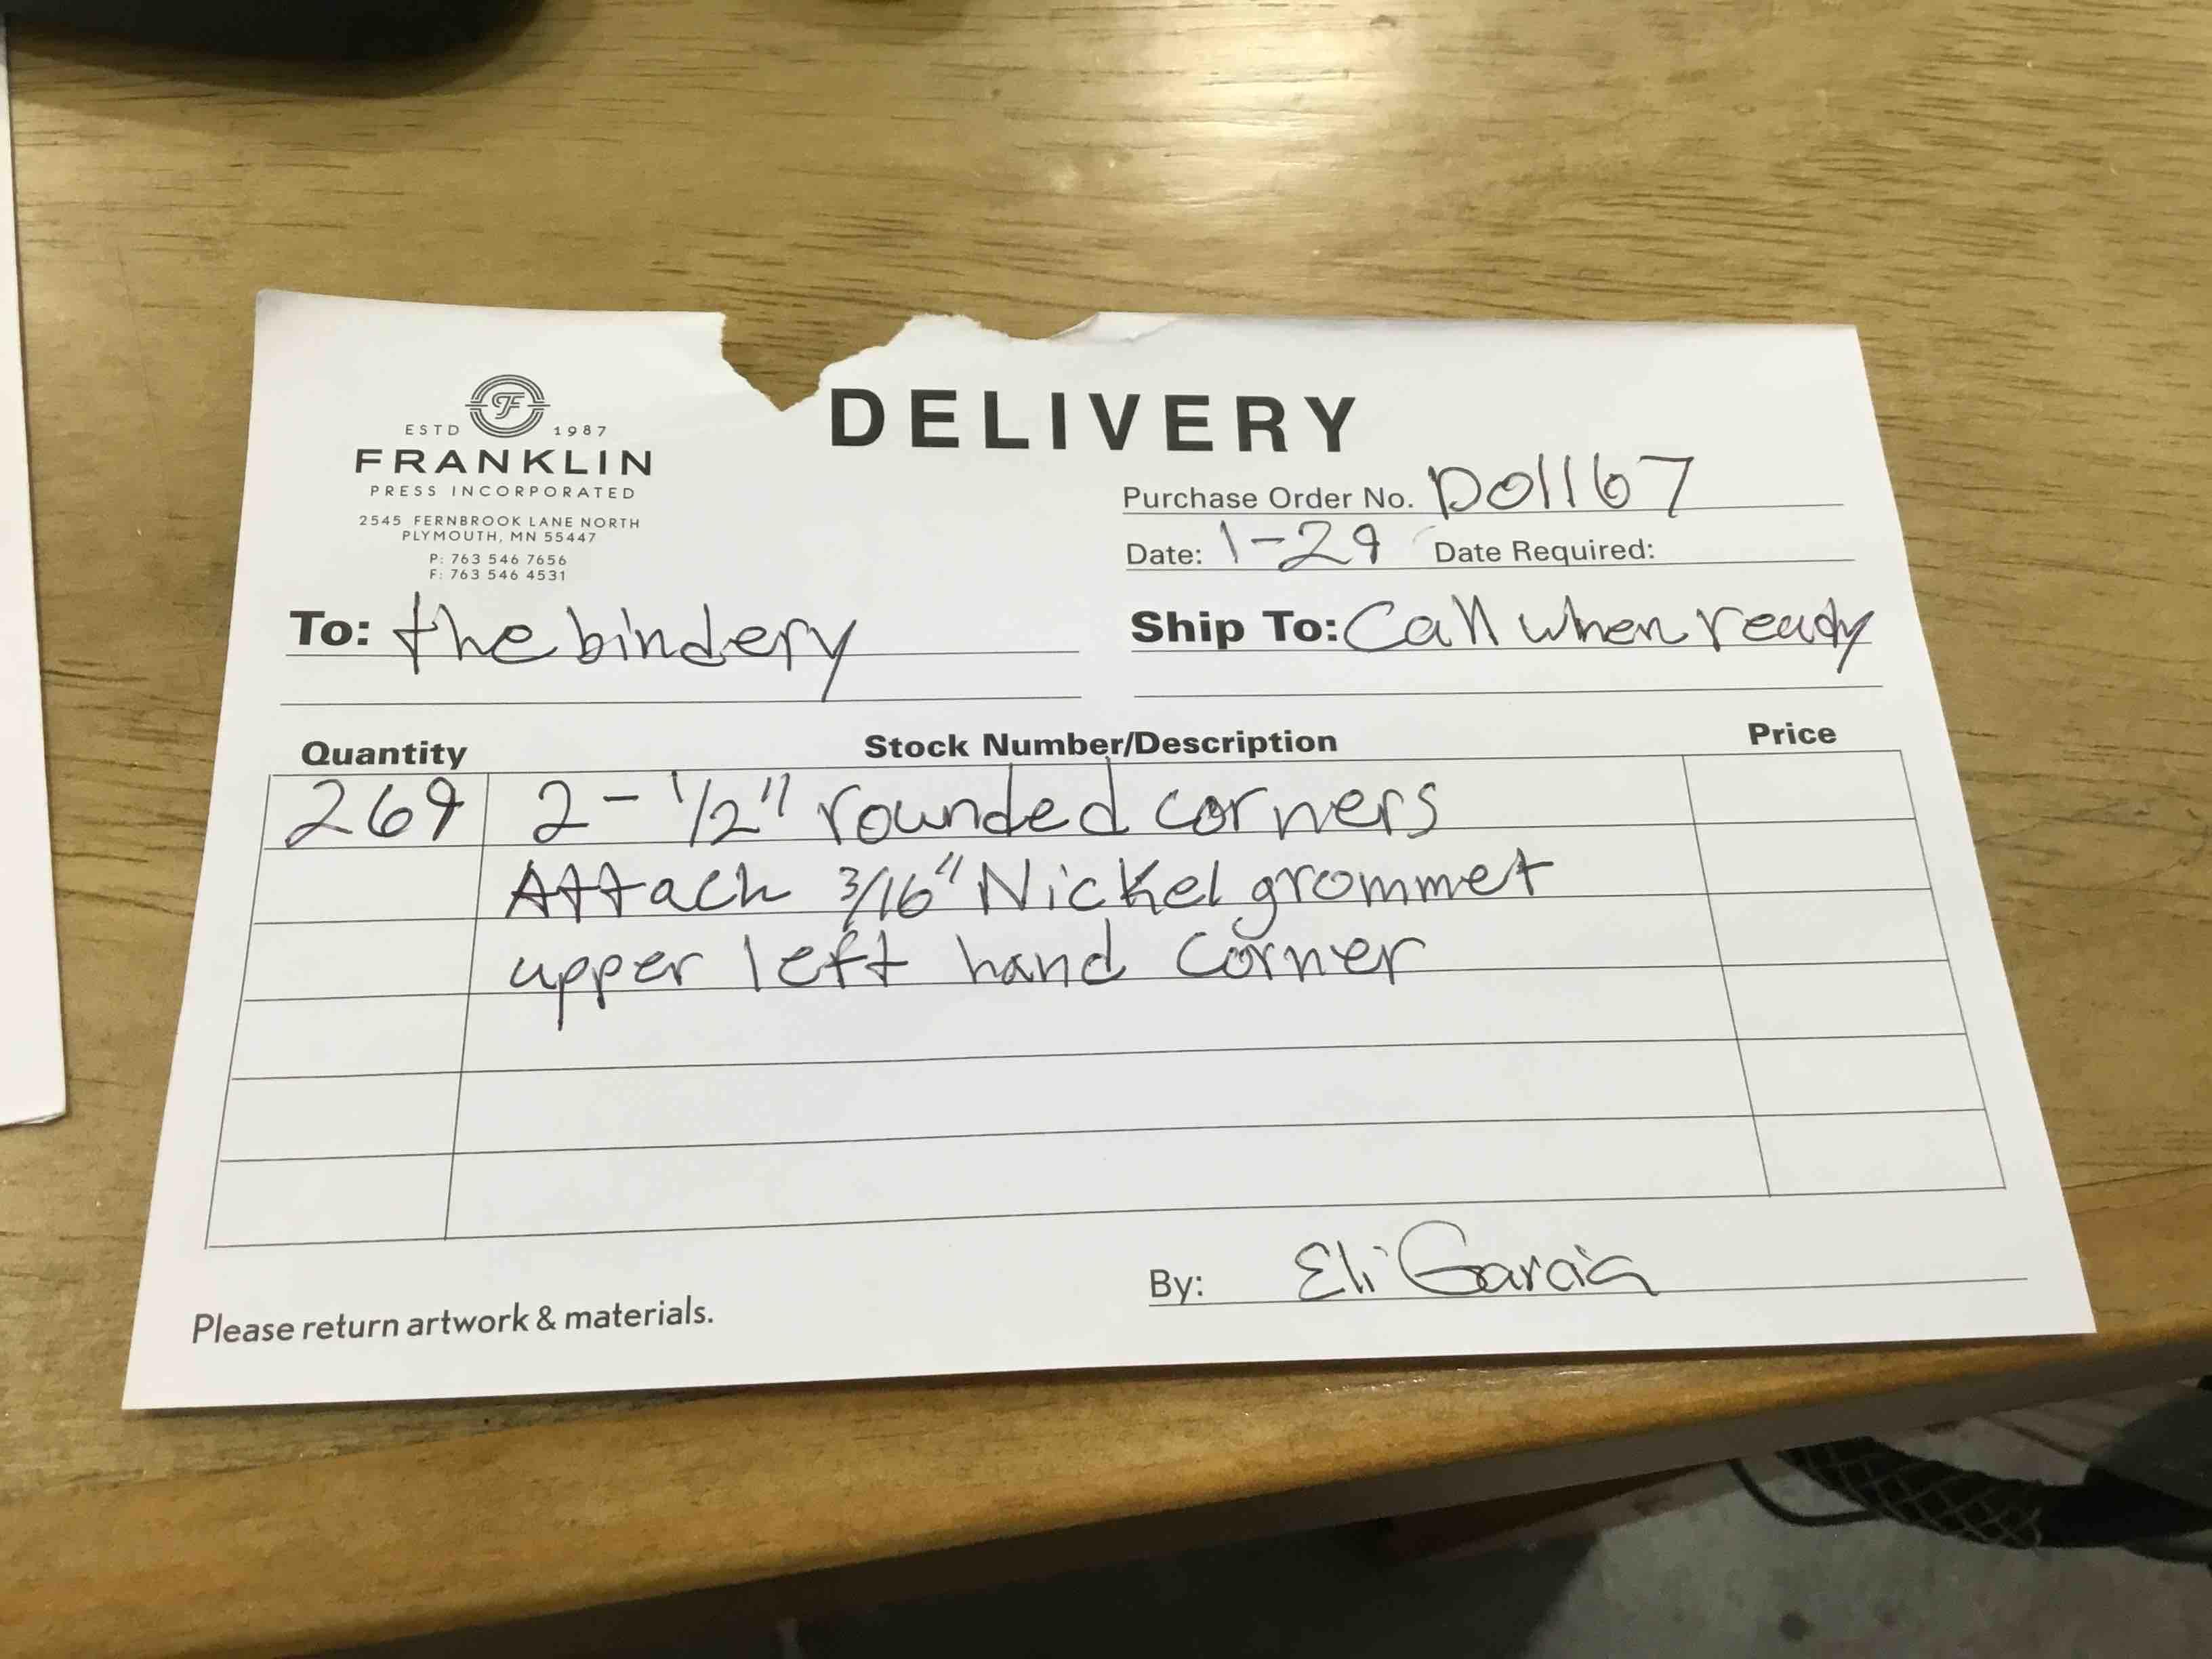 ESTD 1987
FRANKLIN
PRESS INCORPORATED
2545 FERNBROOK LANE NORTH
PLYMOUTH, MN 55447
P: 763 546 7656
F: 763 546 4531
DELIVERY
Purchase Order No. D01167
Date: 1-29 Date Required:
To: the bindery
Ship To: Call when ready
Quantity Stock Number/Description Price
269 2 - 1/2" rounded corners
Attach 3/16" Nickel grommet
upper left hand corner
By: Eli Garcia
Please return artwork & materials.